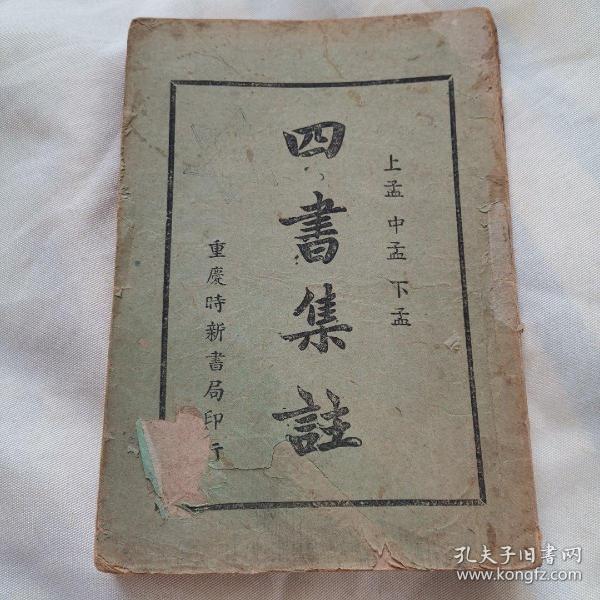 上孟 中孟 下孟
四書集註
重慶時新書局印行
孔夫子旧书网
www.kongfz.com